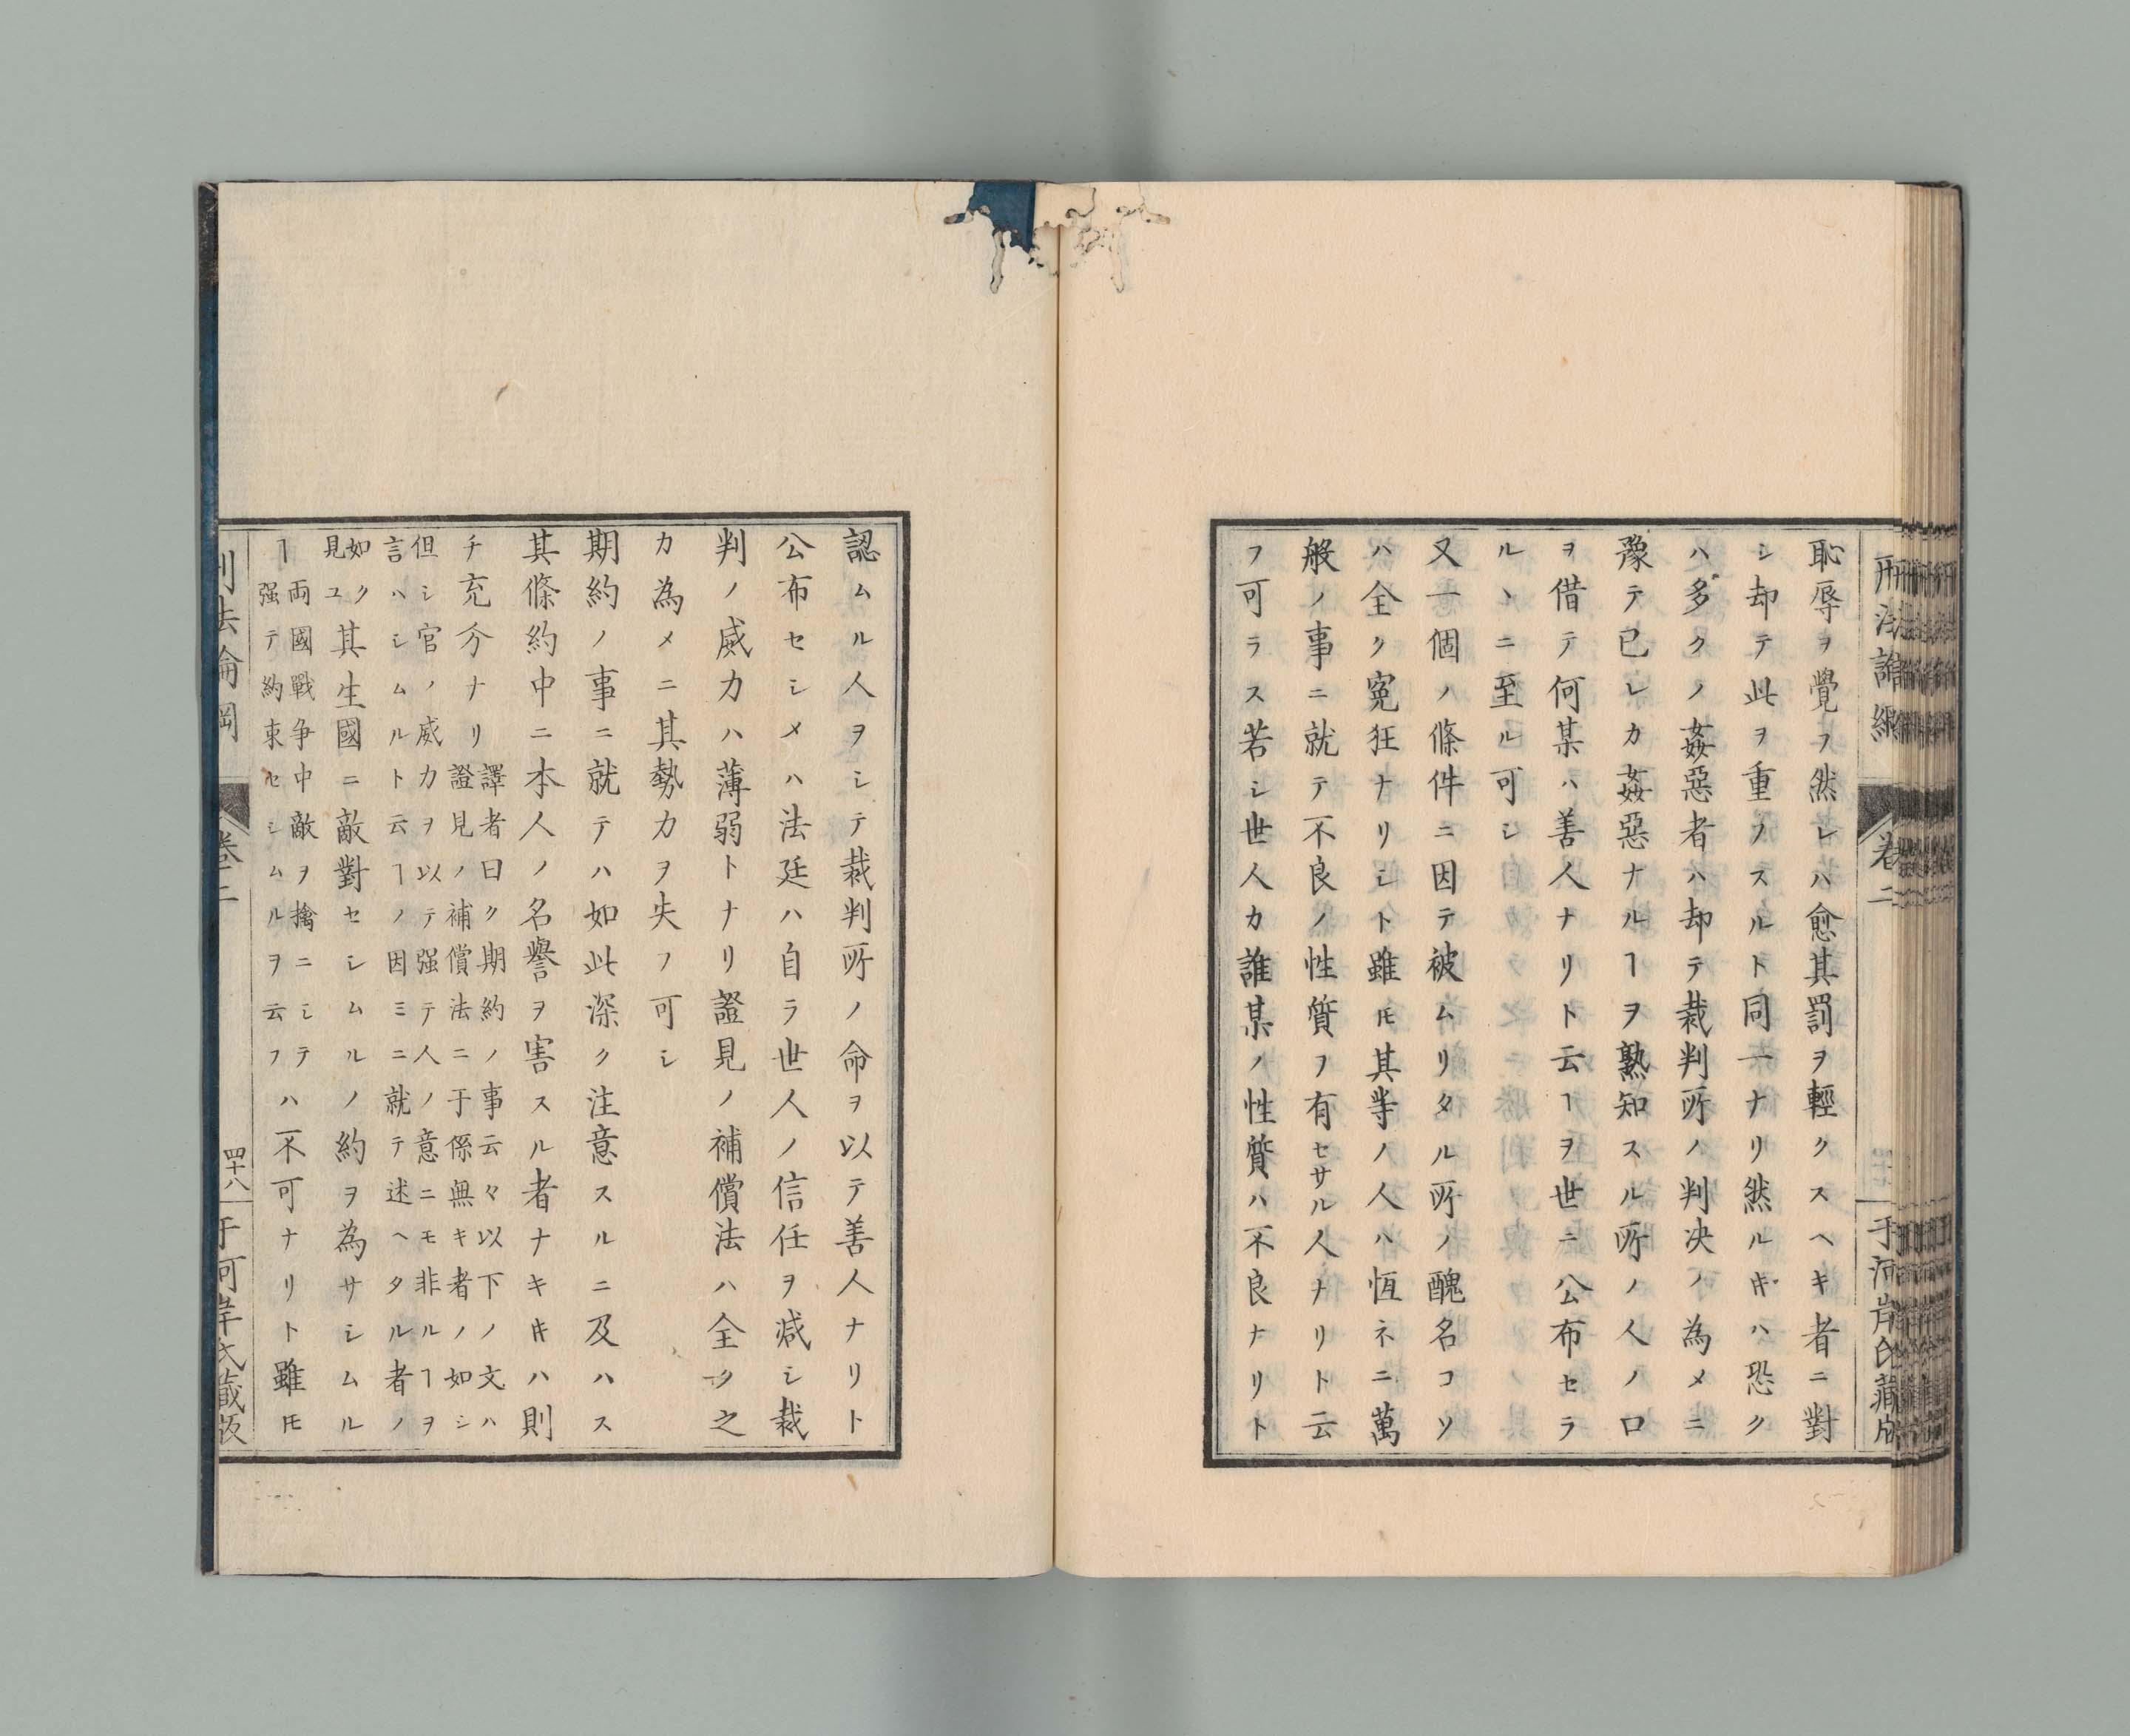 刑法論綱
卷二
于河岸氏藏版
恥辱ヲ覺フ然レハ愈其罰ヲ輕クスヘキ者ニ對
シ却テ此ヲ重フスルト同一ナリ然ルキハ恐ク
ハ多クノ姦惡者ハ却テ裁判所ノ判决ノ為メニ
豫テ已レカ姦惡ナルヿヲ熟知スル所ノ人ノ口
ヲ借テ何某ハ善人ナリト云ヿヲ世ニ公布セラ
ルヽニ至ル可シ
又一個ノ條件ニ因テ被ムリタル所ノ醜名コソ
ハ全ク寃狂ナリシト雖𪜈其等ノ人ハ恆ネニ萬
般ノ事ニ就テ不良ノ性質ヲ有セサル人ナリト云
フ可ラス若シ世人カ誰某ノ性質ハ不良ナリト
認ムル人ヲシテ裁判所ノ命ヲ以テ善人ナリト
公布セシメハ法廷ハ自ラ世人ノ信任ヲ减シ裁
判ノ威力ハ薄弱トナリ證見ノ補償法ハ全ク之
カ為メニ其勢力ヲ失フ可シ
期約ノ事ニ就テハ如此深ク注意スルニ及ハス
其條約中ニ本人ノ名譽ヲ害スル者ナキキハ則
チ充分ナリ
譯者曰ク期約ノ事云々以下ノ文ハ
證見ノ補償法ニ于係無キ者ノ如シ
但シ官ノ威力ヲ以テ强テ人ノ意ニモ非ルヿヲ
言ハシムルト云ヿノ因ミニ就テ述ヘタル者ノ
如ク
見ユ
其生國ニ敵對セシムルノ約ヲ為サシムル
ヿ
両國戰争中敵ヲ擒ニシテ
强テ約束セシムルヲ云フ
ハ不可ナリト雖𪜈
刑法論綱
卷二
四十八
于河岸氏藏版